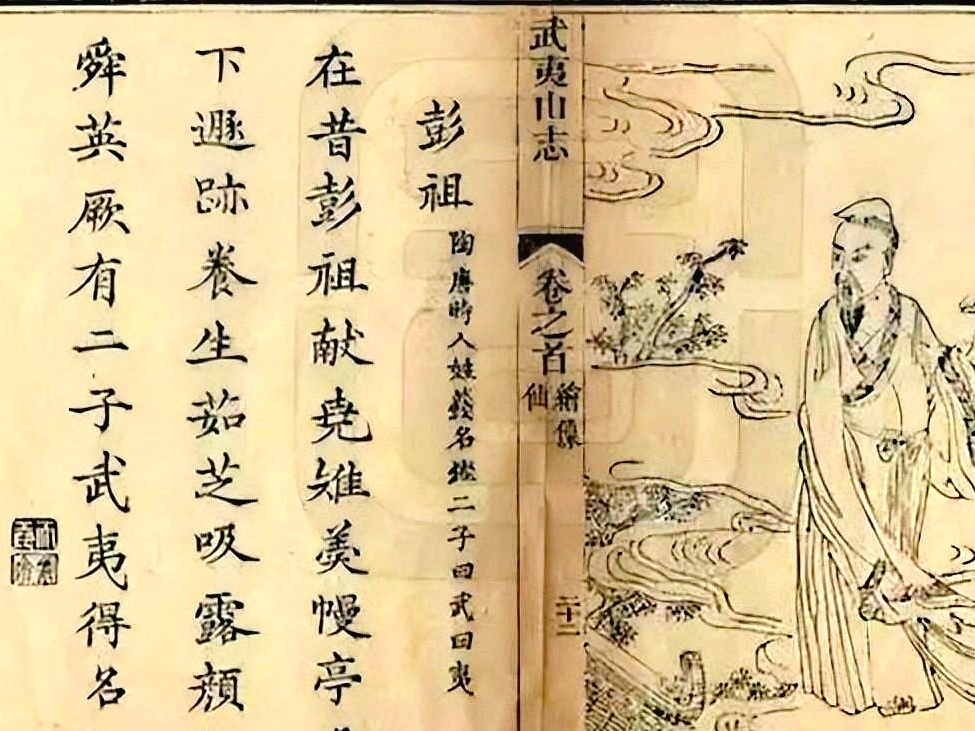 武夷山志
卷之首
繪像
仙
二十二
彭祖
陶唐時人姓籛名鏗二子曰武曰夷
在昔彭祖献堯雉羹幔亭
下遯跡養生茹芝吸露顏
舜英厥有二子武夷得名